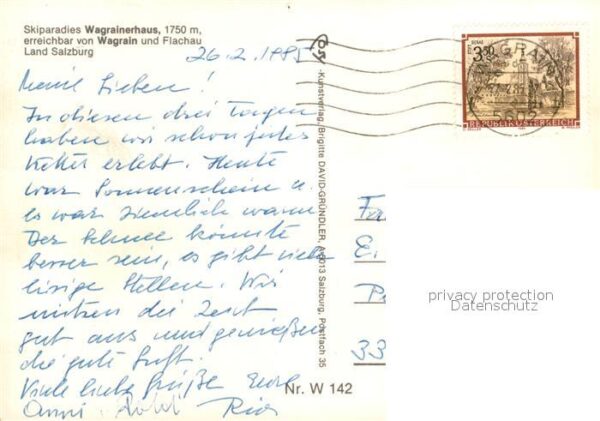 Skiparadies Wagrainerhaus, 1750 m,
erreichbar von Wagrain und Flachau
Land Salzburg
26.2.1985
Meine Lieben!
In diesen drei Tagen
haben wir schon jedes
Wetter erlebt. Heute
war Sonnenschein u.
es war ziemlich warm.
Der Schnee könnte
besser sein, es gibt viele
eisige Stellen. Wir
nützen die Zeit
gut aus und genießen
die gute Luft.
Viele liebe Grüße Eure
Kunstverlag Brigitte DAVID-GRÜNDLER, A-5013 Salzburg, Postfach 35
Nr. W 142
3.50
REPUBLIK ÖSTERREICH
Fa
E.
33
privacy protection
Datenschutz